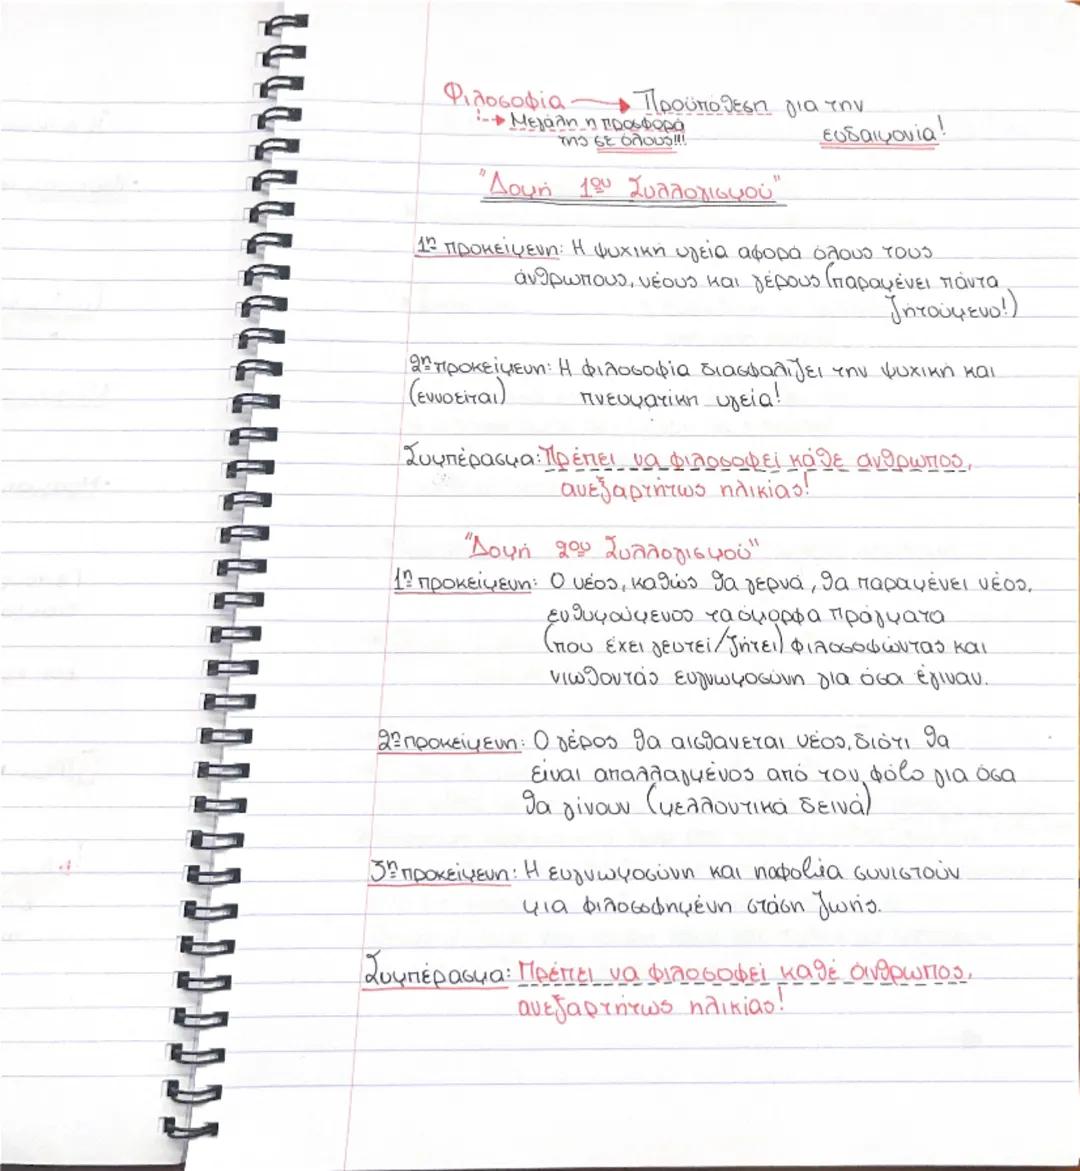 Φιλοσοφία → Προϋπόθεση για την
→ Μεγάλη η προσφορά
της σε όλους!!!
ευδαιμονία!
"Δομή 1ου Συλλογισμού"
1η προκείμενη: Η ψυχική υγεία αφορά όλους τους
ανθρώπους, νέους και γέρους (παραμένει πάντα
ζητούμενο!)
2η προκείμενη: Η φιλοσοφία διασφαλίζει την ψυχική και
(εννοείται) πνευματική υγεία!
Συμπέρασμα: Πρέπει να φιλοσοφεί κάθε άνθρωπος,
ανεξαρτήτως ηλικίας!
"Δομή 2ου Συλλογισμού"
1η προκείμενη: Ο νέος, καθώς θα γερνά, θα παραμένει νέος,
ευθυμούμενος τα όμορφα πράγματα
(που έχει γευτεί/ζήτει) φιλοσοφώντας και
νιώθοντας ευγνωμοσύνη για όσα έγιναν.
2η προκείμενη: Ο γέρος θα αισθάνεται νέος, διότι θα
είναι απαλλαγμένος από τον φόβο για όσα
θα γίνουν (μελλοντικά δεινά)
3η προκείμενη: Η ευγνωμοσύνη και παφοβία συνιστούν
μια φιλοσοφημένη στάση ζωής.
Συμπέρασμα: Πρέπει να φιλοσοφεί κάθε άνθρωπος,
ανεξαρτήτως ηλικίας!